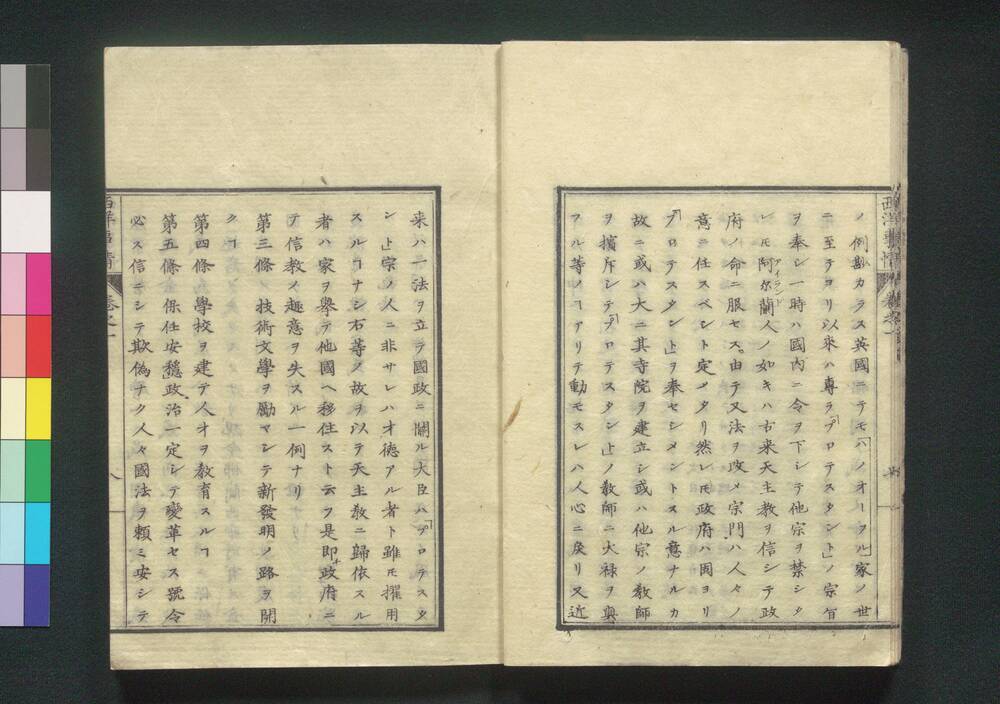 ノ例尠カラス英國ニテモ「ハノオーフル」家ノ世
ニ至テヨリ以來ハ專ラ「プロテスタント」ノ宗旨
ヲ奉シ一時ハ國内ニ令ヲ下シテ他宗ヲ禁シタ
レ𪜈阿尓蘭人ノ如キハ古来天主教ヲ信シテ政
アイランド
府ノ命ニ服セス由テ又法ヲ改メ宗門ハ人々ノ
意ニ任スベシト定メタリ然レ𪜈政府ハ固ヨリ
「プロテスタント」ヲ奉セシメントスル意ナルカ
故ニ或ハ大ニ其寺院ヲ建立シ或ハ他宗ノ教師
ヲ擯斥シテ「プロテスタント」ノ教師ニ大禄ヲ與
フル等ノヿアリテ動モスレハ人心ニ戻リ又近
西洋事情
卷之一
来ハ一法ヲ立テ國政ニ關ル大臣ハ「プロテスタ
ント」宗ノ人ニ非サレハオ德アル者ト雖𪜈擢用
スルヿナシ右等ノ故ヲ以テ天主教ニ歸依スル
者ハ家ヲ擧テ他國ヘ移住スト云フ是即チ政府ニ
テ信教ノ趣意ヲ失スル一例ナリ
第三條 技術文學ヲ勵マシテ新發明ノ路ヲ開
クヿ
第四條 學校ヲ建テ人才ヲ教育スルヿ
第五條 保任安穩政治一定シテ變革セス號令
必ス信ニシテ欺僞ナク人々國法ヲ賴ミ安シテ
西洋事情
卷之一
八